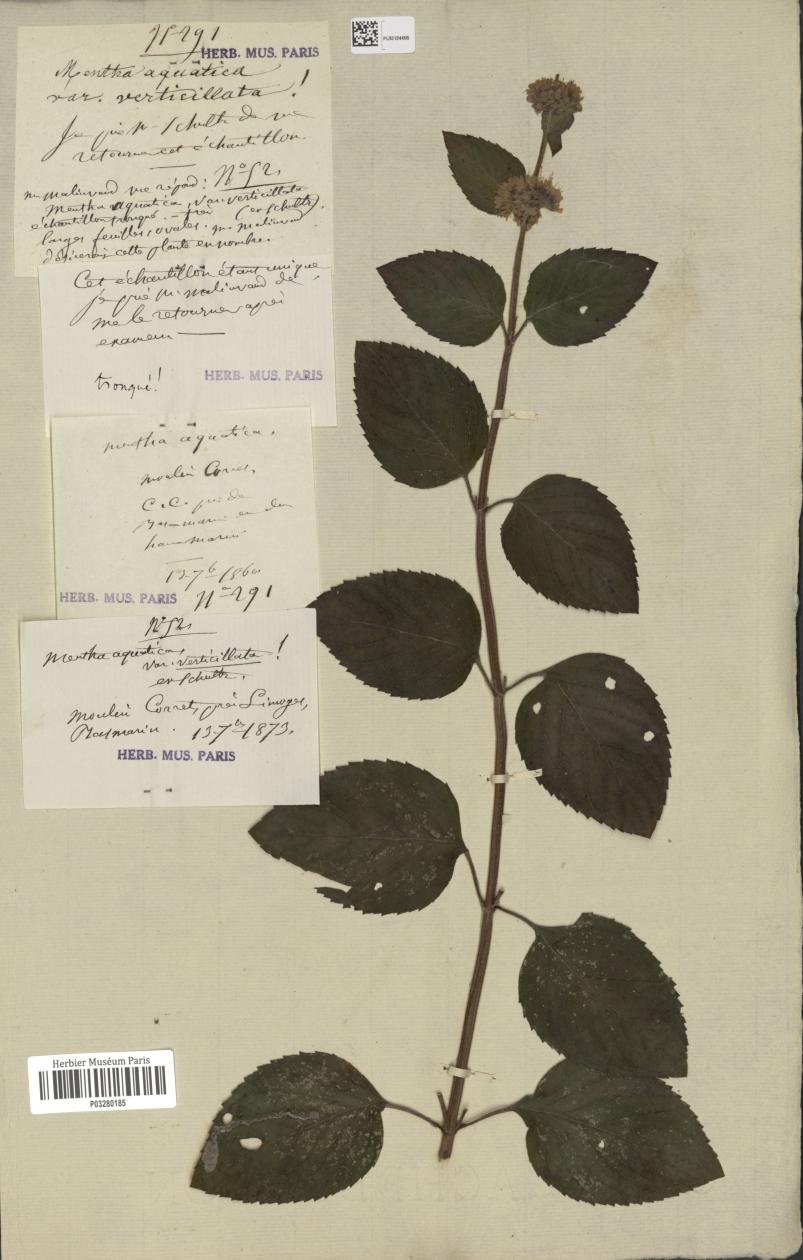 Nº 291
HERB. MUS. PARIS
Mentha aquatica
var. verticillata !
Je prie Mr Schultz de me
retourner cet échantillon.
Mr Malinvaud me répond : Nº 52,
Mentha aquatica, var. verticillata
échantillon tronqué. (ex Schultz)
larges feuilles, ovales. Mr Malinvaud
désirerait cette plante en nombre.
Cet échantillon étant unique
je prie Mr Malinvaud de
me le retourner après
examen
tronqué !
HERB. MUS. PARIS
mentha aquatica,
moulin Corret,
C.C. près de
13 7b 1860
HERB. MUS. PARIS
Nº 291
Nº 52,
Mentha aquatica,
var. verticillata !
ex Schultz,
Moulin Corret, près Limoges,
13 7bre 1873,
HERB. MUS. PARIS
Herbier Muséum Paris
P03280185